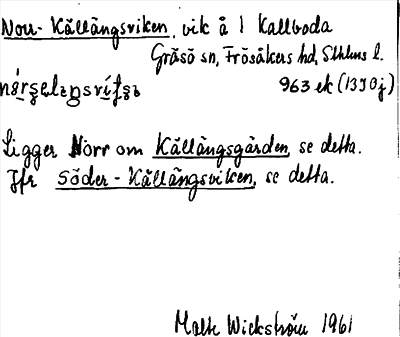 Norr-Källängsviken, vik å 1 Kallboda
Gräsö sn, Frösåkers hd, Sthlms l.
963 ek (13I0j)
Ligger Norr om Källängsgården, se detta.
Jfr Söder-Källängsviken, se detta.
Malte Wickström 1961